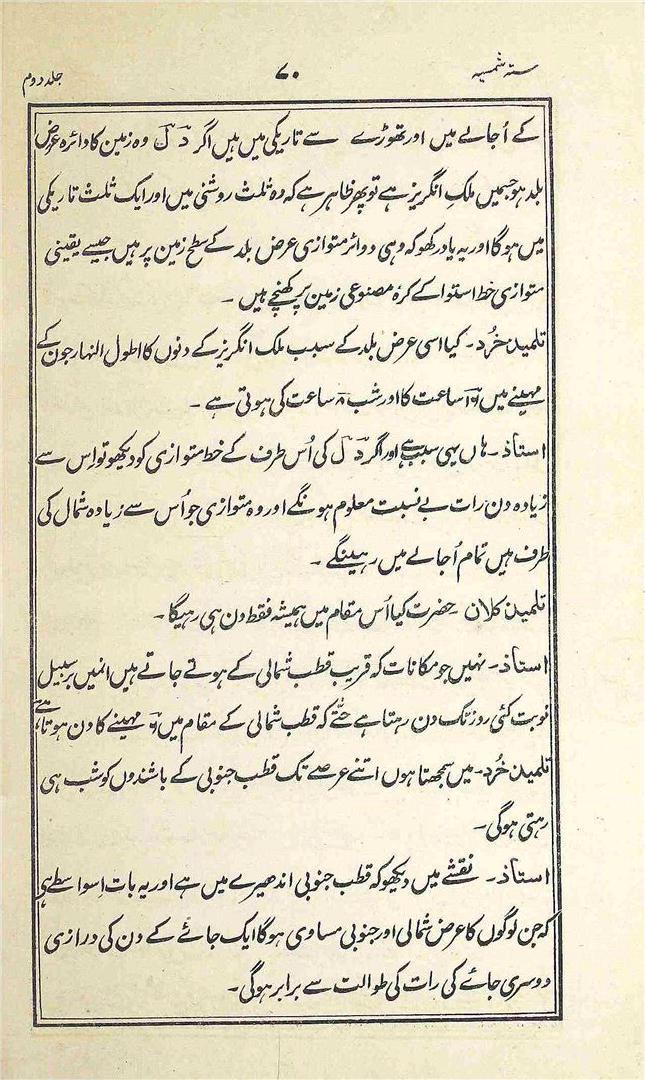 ستہ شمسیہ ۷۰ جلد دوم
کے اُجالے میں اور تھوڑے سے تاریکی میں ہیں اگر دَ لَ وہ زمین کا دائرہ عرض
بلد ہو جسمیں ملکِ انگریز ہے تو پھر ظاہر ہے کہ دو ثلث روشنی میں اور ایک ثلث تاریکی
میں ہوگا اور یہ یاد رکھو کہ وہی دوائر متوازی عرض بلد کے سطح زمین پر ہیں جیسے یقینی
متوازی خط استوا کے کرۂ مصنوعی زمین پر کھنچے ہیں ۔
تلمیذ خُرد ۔ کیا اسی عرض بلد کے سبب ملک انگریز کے دنوں کا اطول النہار جون کے
مہینے میں ۱۶ ساعت کا اور شب ۸ ساعت کی ہوتی ہے ۔
استاذ ۔ ہاں یہی سبب ہے اور اگر دَ لَ کی اُس طرف کے خط متوازی کو دیکھو تو اِس سے
زیادہ دن رات بے نسبت معلوم ہونگے اور وہ متوازی جو اُس سے زیادہ شمال کی
طرف ہیں تمام اُجالے میں رہینگے ۔
تلمیذ کلان ۔ حضرت کیا اُس مقام میں ہمیشہ فقط دن ہی رہیگا ۔
استاذ ۔ نہیں جو مکانات کہ قریب قطب شمالی کے ہوتے جاتے ہیں انہیں بر سبیل
نوبت کئی روز تک دن رہتا ہے حتّٰے کہ قطب شمالی کے مقام میں ۶ مہینے کا دن ہوتا ہے
تلمیذ خُرد ۔ میں سمجھتا ہوں اتنے عرصے تک قطب جنوبی کے باشندوں کو شب ہی
رہتی ہوگی ۔
استاذ ۔ نقشے میں دیکھو کہ قطب جنوبی اندھیرے میں ہے اور یہ بات اِسواسطے ہی
کہ جن لوگوں کا عرض شمالی اور جنوبی مساوی ہوگا ایک جائے کے دن کی درازی
دوسری جائے کی رات کی طوالت سے برابر ہوگی ۔